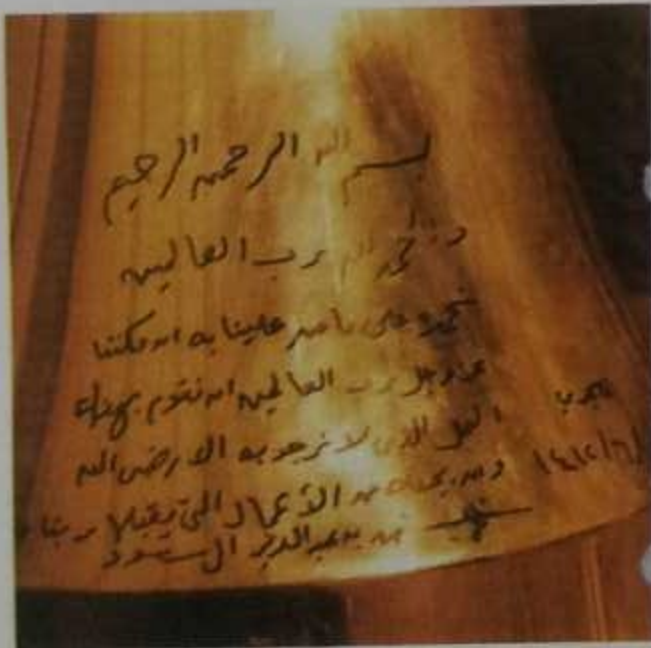 بسم الله الرحمن الرحيم
الحمد لله رب العالمين
نحمده على ما من علينا به ان مكننا
عز وجل رب العالمين ان نقوم بهذا
العمل الذي لا نرجو به الا رضى الله
من الأعمال التي يقبلها ربنا
فهد بن عبد العزيز آل سعود